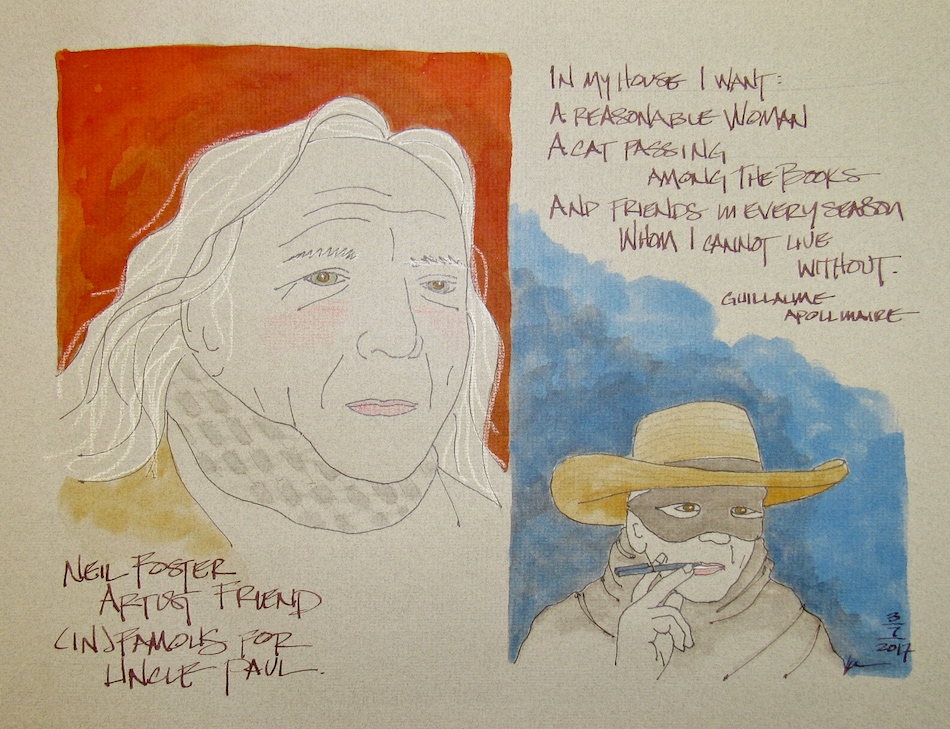 IN MY HOUSE I WANT:
A REASONABLE WOMAN
A CAT PASSING
AMONG THE BOOKS
AND FRIENDS IN EVERY SEASON
WHOM I CANNOT LIVE
WITHOUT.
GUILLAUME
APOLLINAIRE
NEIL FOSTER
ARTIST FRIEND
(IN)FAMOUS FOR
UNCLE PAUL.
3
7
2017